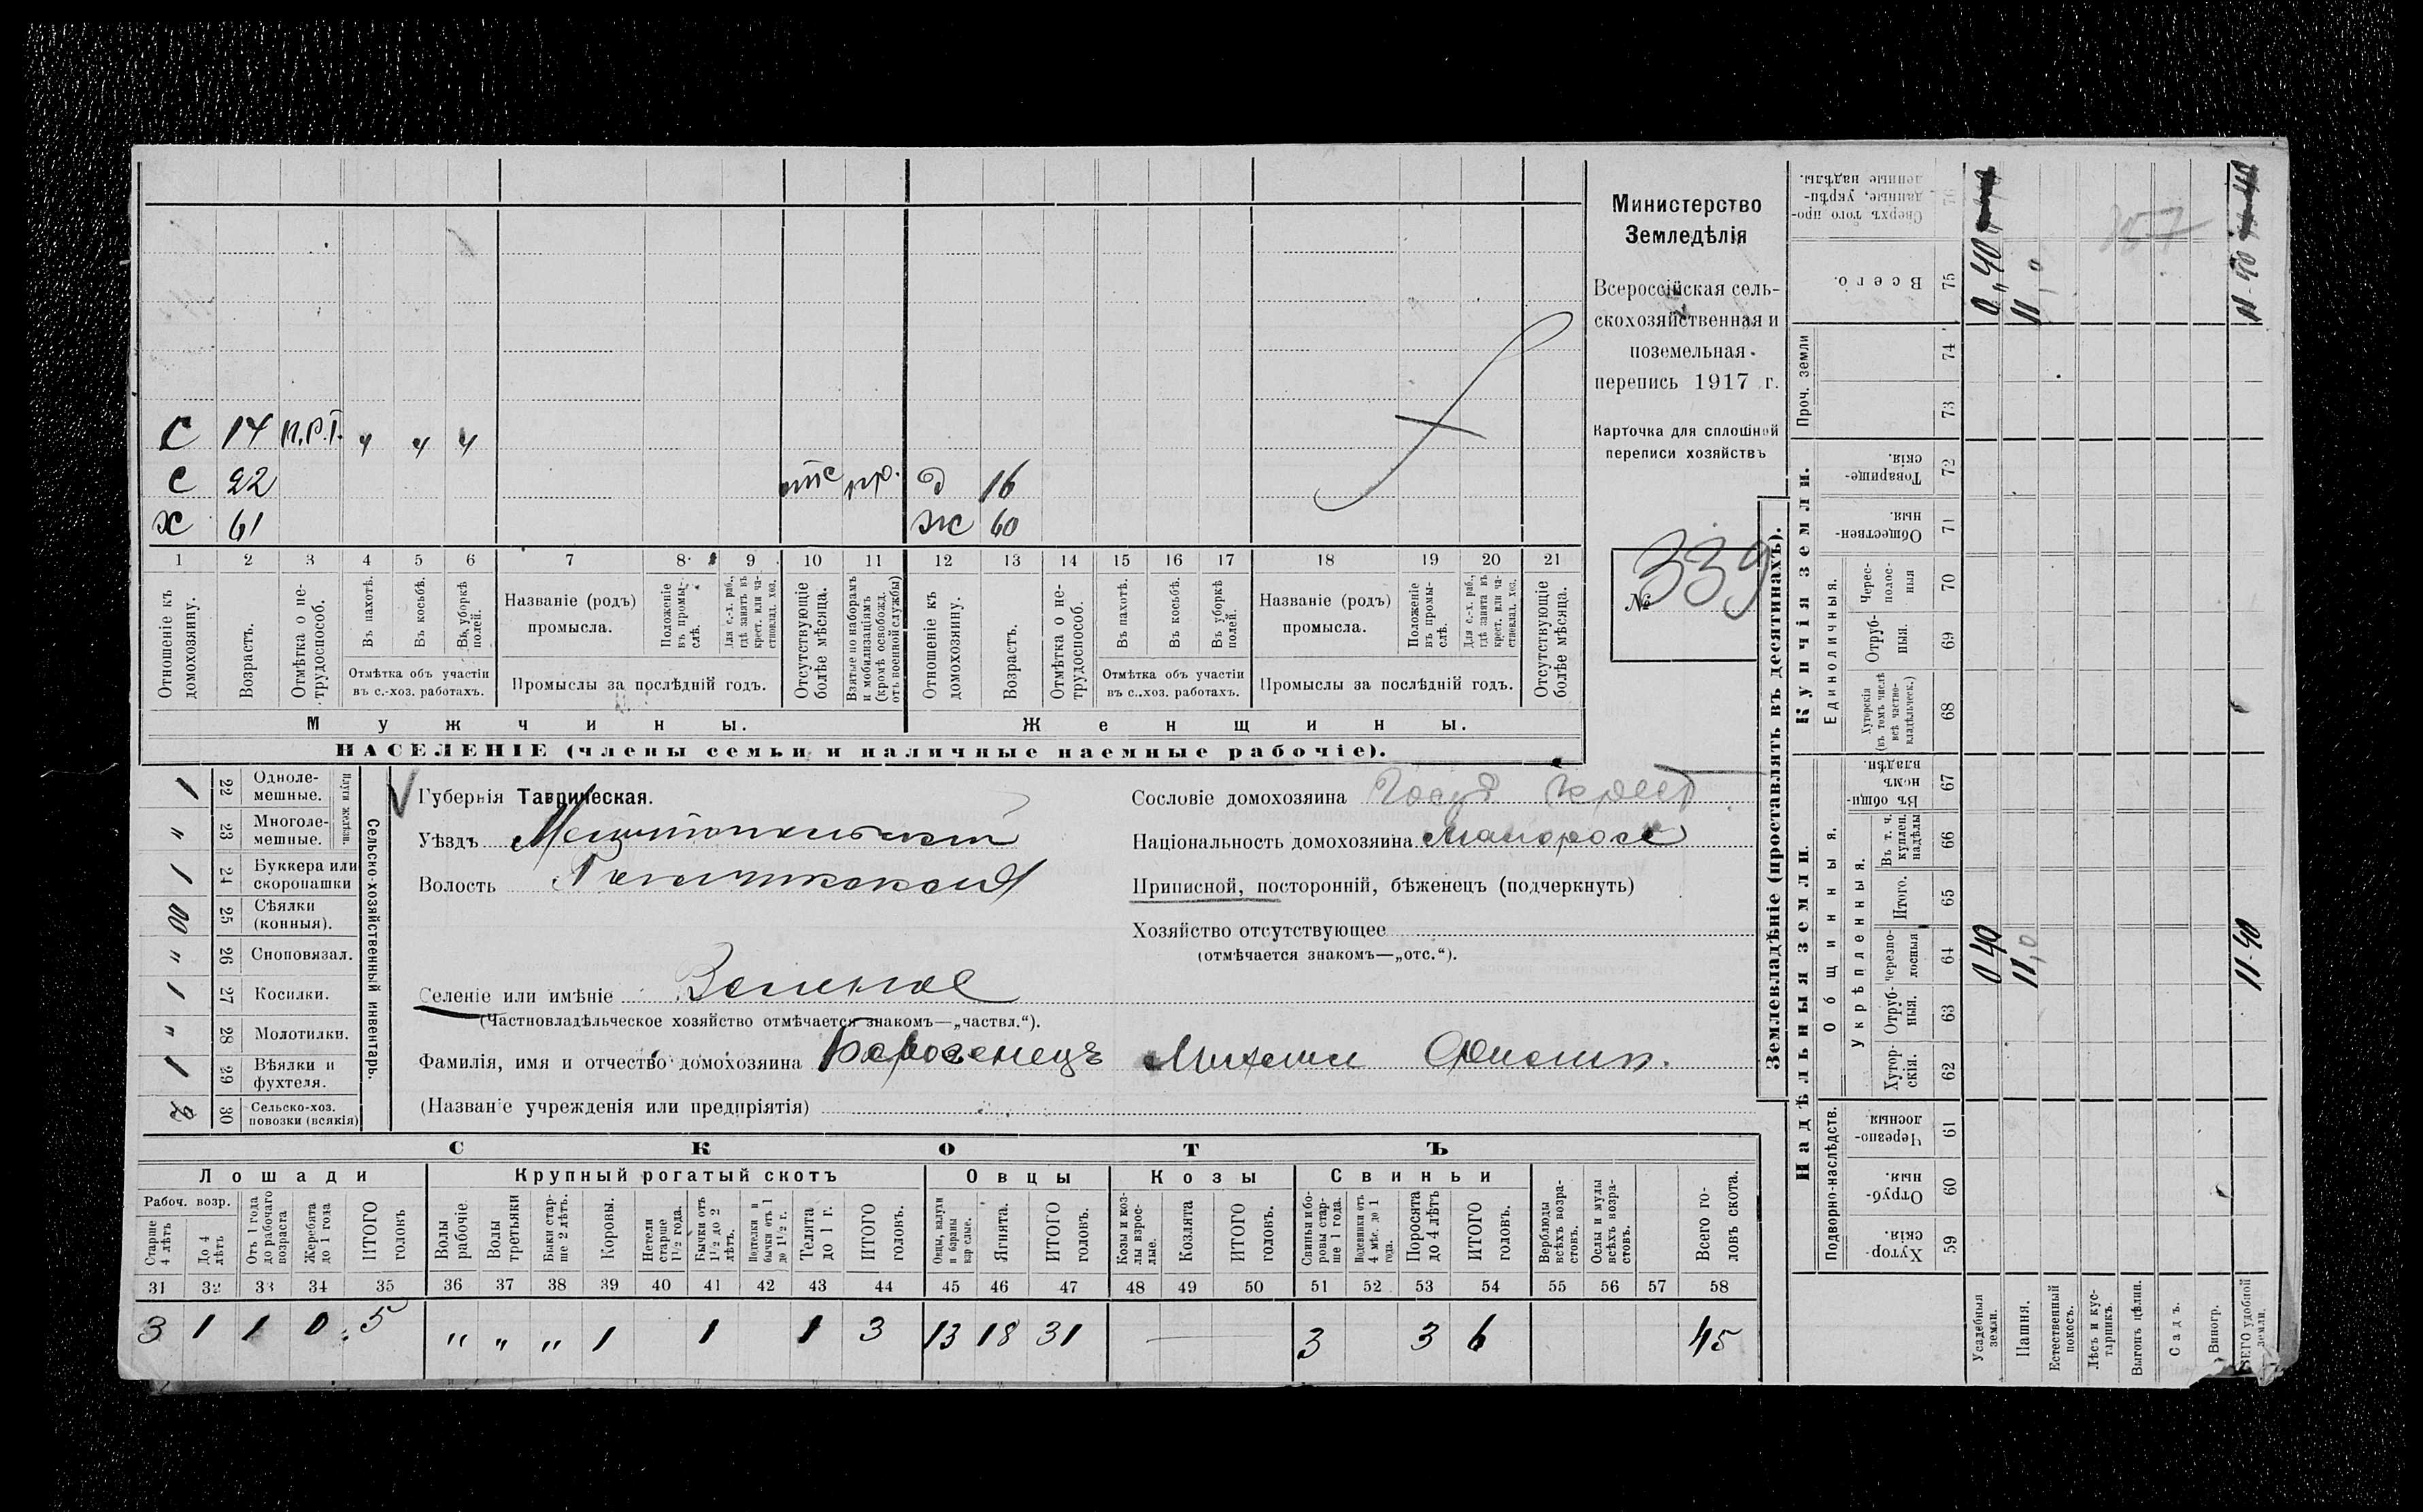 С 14 н.р.т. " " "
С 22 отс пр. д 16
Х 61 Ж 60
1 2 3 4 5 6 7 8 9 10 11 12 13 14 15 16 17 18 19 20 21
Отношеніе къ домохозяину.
Возрастъ.
Отмѣтка о не-трудоспособ.
Въ пахотѣ.
Въ косьбѣ.
Въ уборкѣ полей.
Отмѣтка объ участіи въ с.-хоз. работахъ.
Названіе (родъ) промысла.
Положеніе въ промыслѣ.
Для с.-х. раб., гдѣ занятъ въ крест. или частновлад. хоз.
Промыслы за послѣдній годъ.
Отсутствующіе болѣе мѣсяца.
Взятые по наборамъ и мобилизаціямъ (кромѣ освобожд. отъ военной службы)
Отношеніе къ домохозяину.
Возрастъ.
Отмѣтка о не-трудоспособ.
Въ пахотѣ.
Въ косьбѣ.
Въ уборкѣ полей.
Отмѣтка объ участіи въ с.-хоз. работахъ.
Названіе (родъ) промысла.
Положеніе въ промыслѣ.
Для с.-х. раб., гдѣ занята въ крест. или частновлад. хоз.
Промыслы за послѣдній годъ.
Отсутствующіе болѣе мѣсяца.
Мужчины. Женщины.
НАСЕЛЕНІЕ (члены семьи и наличные наемные рабочіе).
Министерство
Земледѣлія
Всероссійская сель-
скохозяйственная и
поземельная
перепись 1917 г.
Карточка для сплошной
переписи хозяйствъ
№ 339
Сельско-хозяйственный инвентарь.
Плуги желѣзн.
1 22 Одноле-мешные.
" 23 Многоле-мешные.
1 24 Буккера или скоропашки
00 25 Сѣялки (конныя).
" 26 Сноповязал.
1 27 Косилки.
" 28 Молотилки.
1 29 Вѣялки и фухтеля.
2 30 Сельско-хоз. повозки (всякія)
Губернія Таврическая.
Уѣздъ Мелитопольскій
Волость
Селеніе или имѣніе Зеленое
(Частновладѣльческое хозяйство отмѣчается знакомъ—„частвл.“).
Фамилія, имя и отчество домохозяина Бороженецъ Михаил Филип.
(Названіе учрежденія или предпріятія)
Сословіе домохозяина Госуд крест
Національность домохозяина малоросс
Приписной, посторонній, бѣженецъ (подчеркнуть)
Хозяйство отсутствующее
(отмѣчается знакомъ—„отс.“).
СКОТЪ
Лошади Крупный рогатый скотъ Овцы Козы Свиньи
Рабоч. возр.
Старше 4 лѣтъ
До 4 лѣтъ
Отъ 1 года до рабочаго возраста
Жеребята до 1 года
ИТОГО головъ
Волы рабочіе
Волы третьяки
Быки старше 2 лѣтъ.
Коровы.
Нетели старше 1½ года.
Бычки отъ 1½ до 2 лѣтъ.
Подтелки и бычки отъ 1 до 1½ г.
Телята до 1 г.
ИТОГО головъ.
Овцы, валухи и бараны взрослые.
Ягнята.
ИТОГО головъ.
Козы и козлы взрослые.
Козлята
ИТОГО головъ.
Свиньи и боровы старше 1 года.
Подсвинки отъ 4 мѣс. до 1 года.
Поросята до 4 лѣтъ
ИТОГО головъ.
Верблюды всѣхъ возрастовъ.
Ослы и мулы всѣхъ возрастовъ.
Всего головъ скота.
31 32 33 34 35 36 37 38 39 40 41 42 43 44 45 46 47 48 49 50 51 52 53 54 55 56 57 58
3 1 1 0 5 " " " 1 1 1 3 13 18 31 — 3 3 6 45
Землевладѣніе (проставлять въ десятинахъ).
Надѣльныя земли. Купчія земли.
Подворно-наслѣдств. Общинныя. Единоличныя. Проч. земли
Укрѣпленныя.
Хуторскія. 59
Отрубныя. 60
Черезполосныя 61
Хуторскія. 62
Отрубныя. 63
черезполосныя 64
Итого. 65
Въ т. ч. куплен. надѣлы 66
Въ общинномъ владѣн. 67
Хуторскія (въ томъ числѣ всѣ частновладѣльческ.) 68
Отрубныя. 69
Чересполосныя 70
Общественныя. 71
Товарищескія. 72
73
74
Всего. 75
Сверхъ того проданные, укрѣпленные надѣлы.
Усадебныя земли. 0 40 0,,40
Пашня. 11,0 11,0
Естественный покосъ.
Лѣсъ и кустарникъ.
Выгонъ цѣлин.
Садъ.
Виногр.
ВСЕГО удобной земли. 11-40 11 40
357